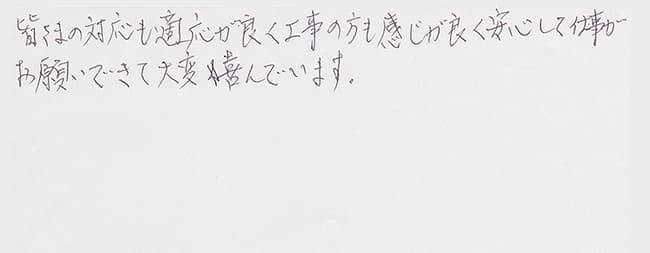 皆さまの対応も適応が良く工事の方も感じが良く安心して仕事が
お願いできて大変嬉んでいます。